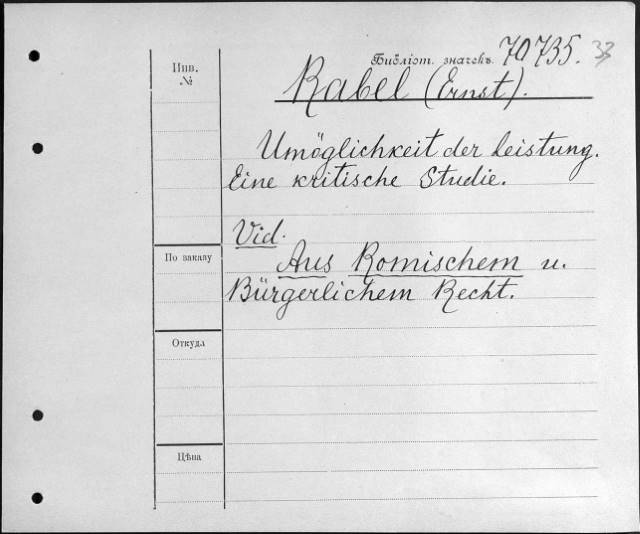 Инв.
№
Библіот. значекъ 70735. 33
Rabel (Ernst).
Umöglichkeit der Leistung.
Eine kritische Studie.
Vid.
Aus Romischem u.
Bürgerlichem Recht.
По заказу
Откуда
Цѣна